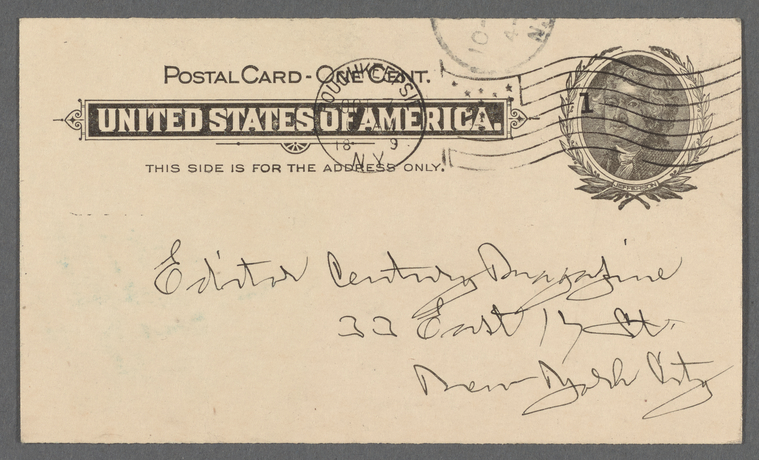 POSTAL CARD - ONE CENT.
UNITED STATES OF AMERICA.
THIS SIDE IS FOR THE ADDRESS ONLY.
JEFFERSON
1
N.Y.
Editor Century Magazine
33 East 17 St.
New York City